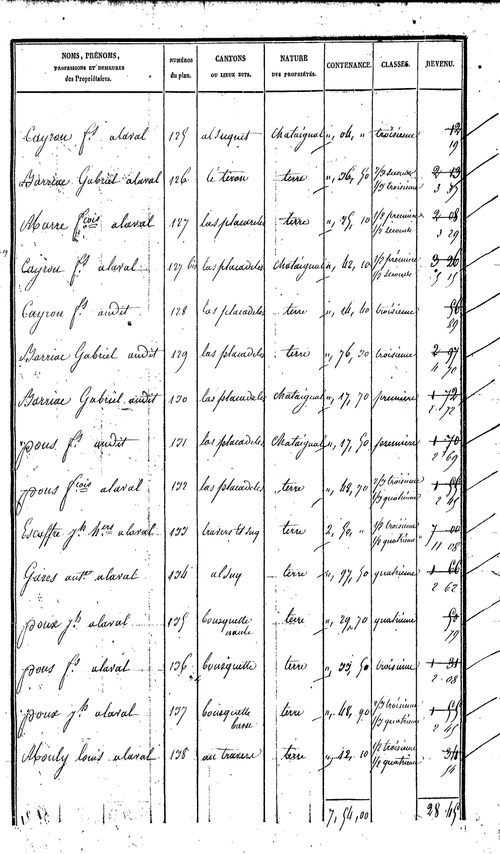 NOMS, PRÉNOMS, PROFESSIONS ET DEMEURES des Propriétaires. NUMÉROS du plan. CANTONS OU LIEUX DITS. NATURE DES PROPRIÉTÉS. CONTENANCE. CLASSES. REVENU.
Cayrou fs. alaval 125 alsuquet Chataignal ", 04, " troisieme 12 19
Barriac Gabriel alaval 126 le teron terre ", 36, 50 seconde troisieme 2 13
Marre fcois alaval 127 Las placadeles terre 10 1/2 premiere 1/2 seconde 2 08 3 29
Cayrou fs. alaval 127 bis Las placadeles Chataignal ", 42, 10 premiere seconde 3 26 5 15
Cayrou fs. audit 128 Las placadeles terre ", 14, 40 troisieme 56 89
Barriac Gabriel audit 129 Las placadeles terre ", 76, 30 troisieme 2 97
Barriac Gabriel audit 130 Las placadeles Chataignal ", 17, 70 premiere 1 72 2 72
pons fs. audit 131 Las placadeles Chataignal ", 17, 50 premiere 1 70 2 69
pons fcois alaval 132 Las placadeles terre ", 48, 70 2/3 troisieme 1/3 quatrieme 1 55 2 45
Escaffre jh. hers alaval 133 terre 2, 50, " 1/2 troisieme 1/2 quatrieme 7 00 11 08
Gares ant. alaval 134 alsuq terre ", 97, 50 quatrieme 1 66 2 62
poux jh. alaval 135 bousquette haute terre ", 29, 70 quatrieme 50 79
pons fs. alaval 136 bousquette terre ", 33, 50 troisieme 1 31 2 08
poux jh. alaval 137 bousquette basse terre ", 48, 90 2/3 troisieme 1/3 quatrieme 1 55 2 45
Mouly louis alaval 138 au travers terre ", 12, 10 1/2 troisieme 1/2 quatrieme 34 54
7, 54, 00 28 45